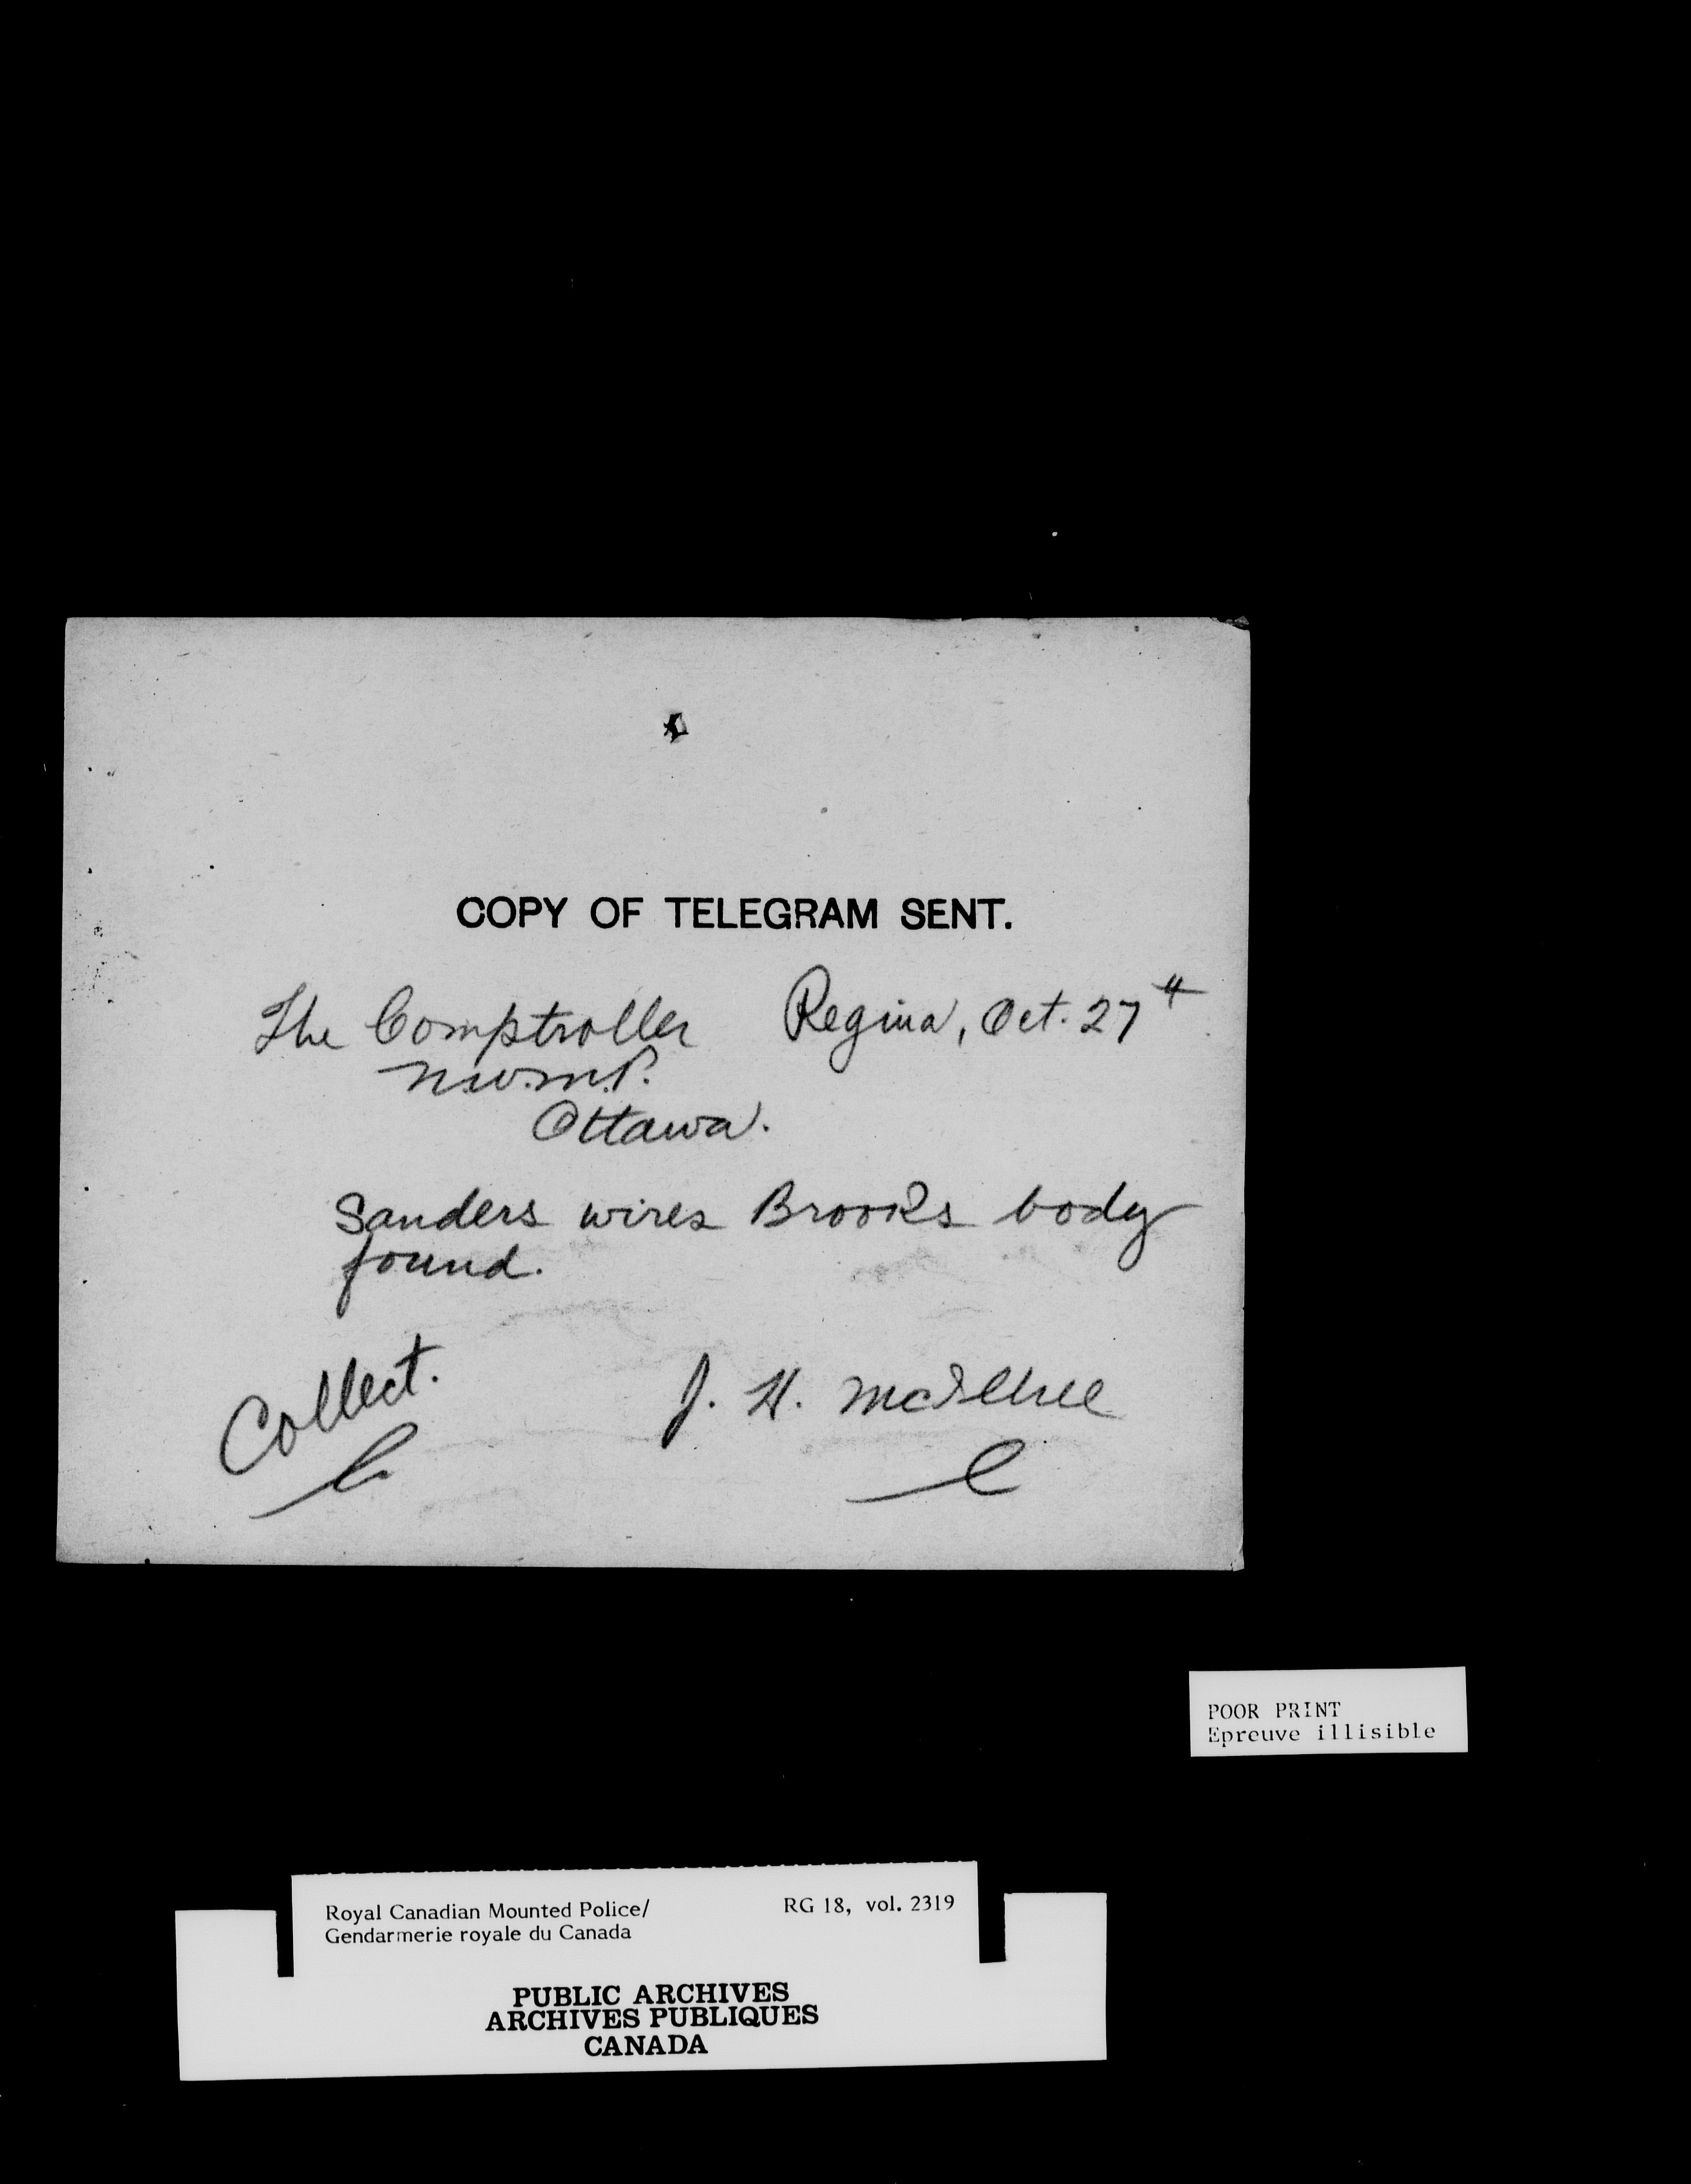 COPY OF TELEGRAM SENT.
The Comptroller Regina, Oct. 27th
N.W.M.P.
Ottawa.
Sanders wires Brooks body
found.
Collect. J. H. McIllree
POOR PRINT
Epreuve illisible
Royal Canadian Mounted Police/ RG 18, vol. 2319
Gendarmerie royale du Canada
PUBLIC ARCHIVES
ARCHIVES PUBLIQUES
CANADA